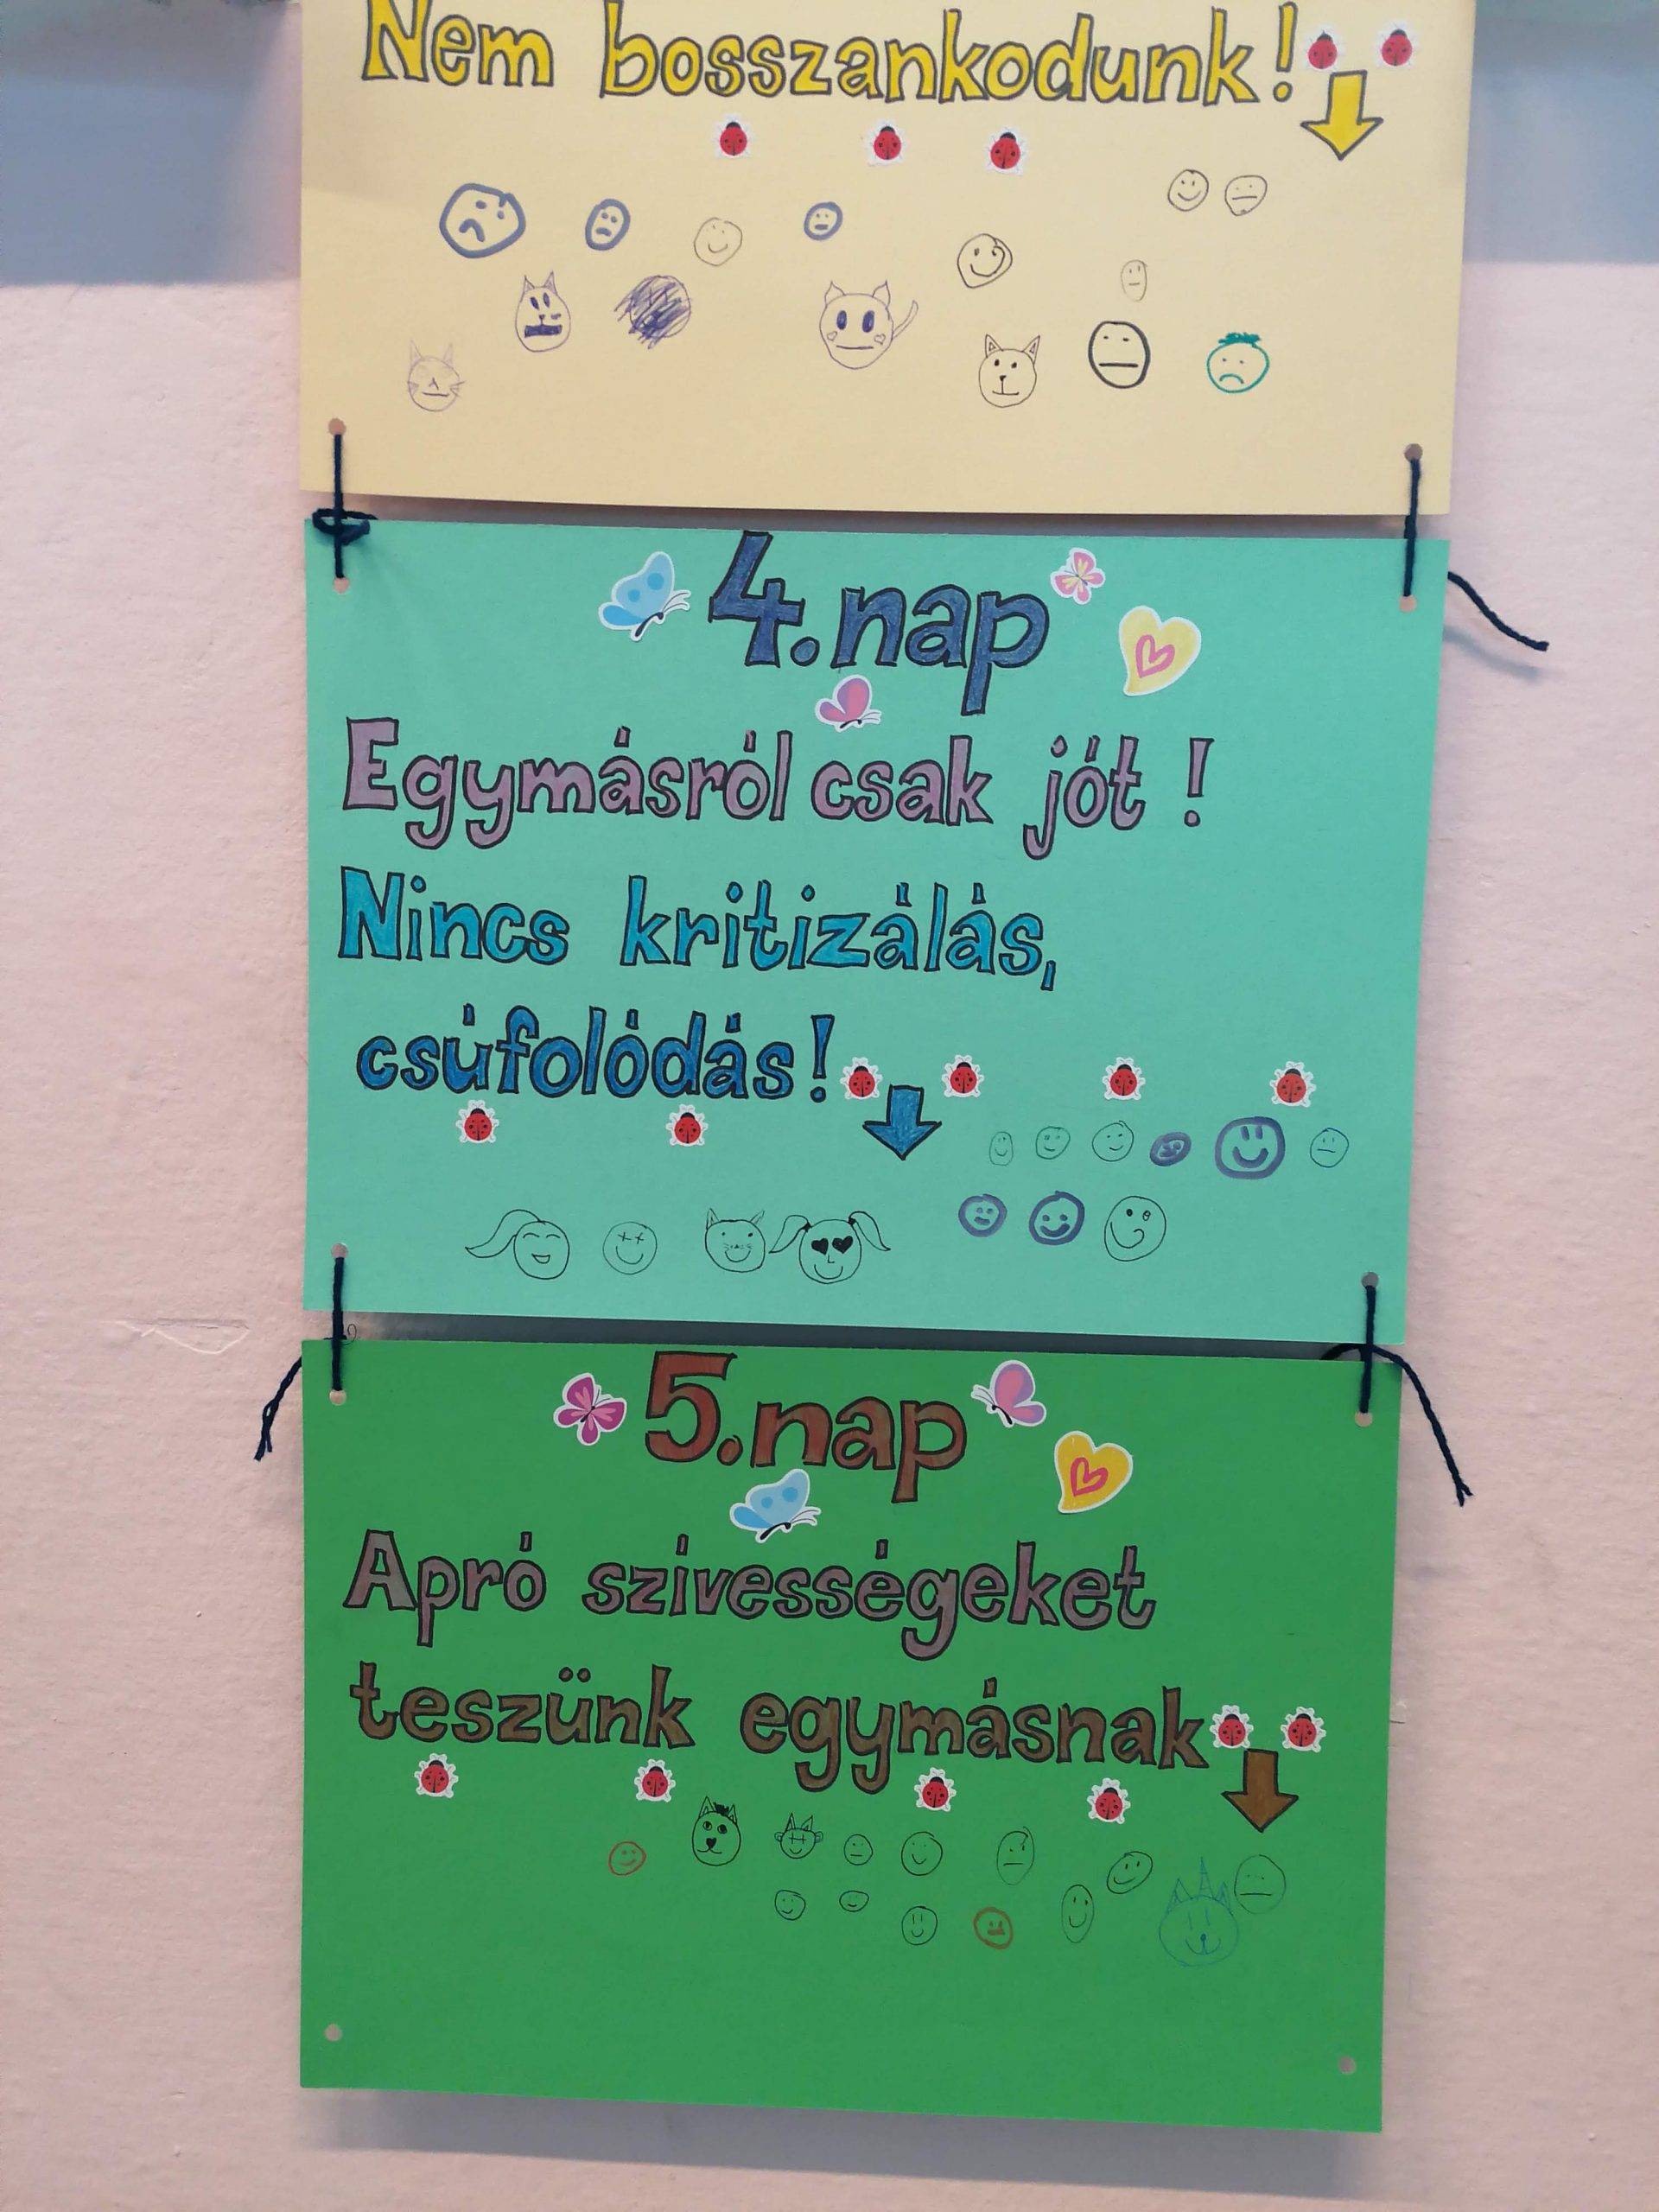 Nem bosszankodunk!
4.nap
Egymásról csak jót !
Nincs kritizálás,
csúfolódás!
5.nap
Apró szívességeket
teszünk egymásnak